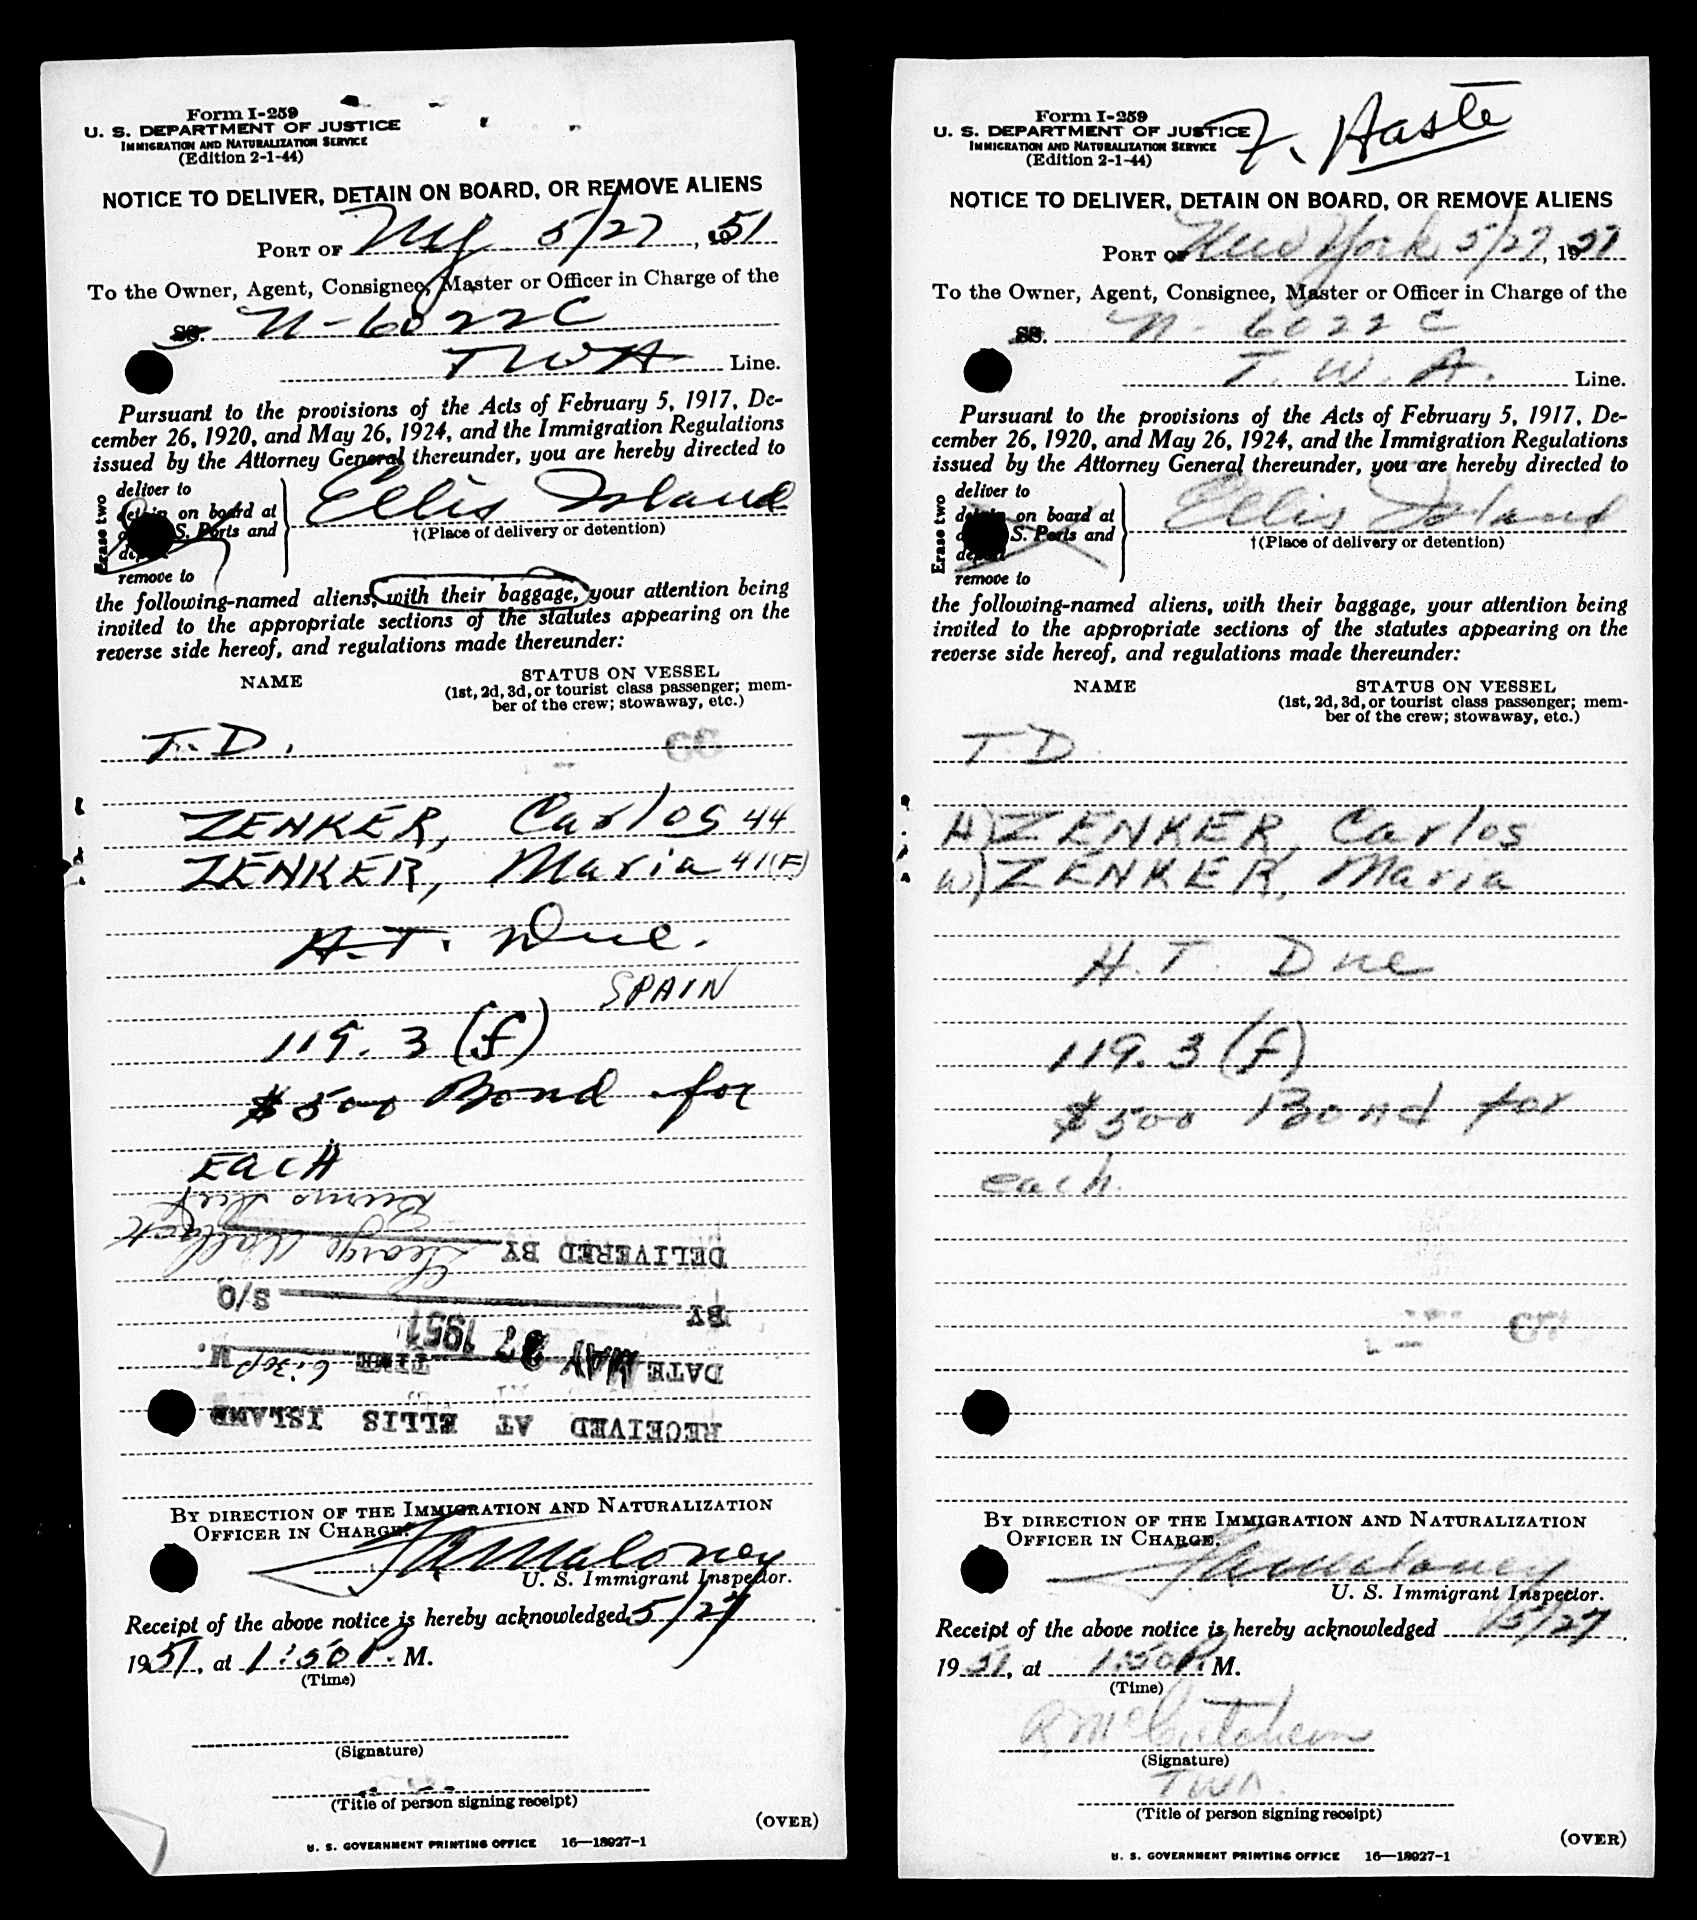 Form I-259
U. S. DEPARTMENT OF JUSTICE
IMMIGRATION AND NATURALIZATION SERVICE
(Edition 2-1-44)
NOTICE TO DELIVER, DETAIN ON BOARD, OR REMOVE ALIENS
PORT OF NY 5/27, 1951
To the Owner, Agent, Consignee, Master or Officer in Charge of the
SS. N-6022C
TWA Line.
Pursuant to the provisions of the Acts of February 5, 1917, De-
cember 26, 1920, and May 26, 1924, and the Immigration Regulations
issued by the Attorney General thereunder, you are hereby directed to
Erase two
deliver to
detain on board at
S. Ports and
remove to
Ellis Island
†(Place of delivery or detention)
the following-named aliens, with their baggage, your attention being
invited to the appropriate sections of the statutes appearing on the
reverse side hereof, and regulations made thereunder:
NAME
STATUS ON VESSEL
(1st, 2d, 3d, or tourist class passenger; mem-
ber of the crew; stowaway, etc.)
T.D.
ZENKER, Carlos 44
ZENKER, Maria 41(F)
H.T. Due.
SPAIN
119.3 (f)
$500 Bond for
EACH
DELIVERED BY
BY S/O
DATE MAY 27 1951 TIME 6:30P M.
RECEIVED AT ELLIS ISLAND
BY DIRECTION OF THE IMMIGRATION AND NATURALIZATION
OFFICER IN CHARGE.
Maloney
U. S. Immigrant Inspector.
Receipt of the above notice is hereby acknowledged 5/27
1951, at 1:50 P. M.
(Time)
(Signature)
(Title of person signing receipt)
(OVER)
U. S. GOVERNMENT PRINTING OFFICE 16—18927-1
Form I-259
U. S. DEPARTMENT OF JUSTICE
IMMIGRATION AND NATURALIZATION SERVICE
(Edition 2-1-44)
F. Haste
NOTICE TO DELIVER, DETAIN ON BOARD, OR REMOVE ALIENS
PORT OF New York 5/27, 1951
To the Owner, Agent, Consignee, Master or Officer in Charge of the
SS. N-6022C
T.W.A. Line.
Pursuant to the provisions of the Acts of February 5, 1917, De-
cember 26, 1920, and May 26, 1924, and the Immigration Regulations
issued by the Attorney General thereunder, you are hereby directed to
Erase two
deliver to
detain on board at
S. Ports and
remove to
Ellis Island
†(Place of delivery or detention)
the following-named aliens, with their baggage, your attention being
invited to the appropriate sections of the statutes appearing on the
reverse side hereof, and regulations made thereunder:
NAME
STATUS ON VESSEL
(1st, 2d, 3d, or tourist class passenger; mem-
ber of the crew; stowaway, etc.)
T.D.
H) ZENKER, Carlos
W) ZENKER, Maria
H.T. Due
119.3 (f)
$500 Bond for
each.
BY DIRECTION OF THE IMMIGRATION AND NATURALIZATION
OFFICER IN CHARGE.
Maloney
U. S. Immigrant Inspector.
Receipt of the above notice is hereby acknowledged 5/27
1951, at 1:50 P. M.
(Time)
R McCutcheon
(Signature)
TWA.
(Title of person signing receipt)
(OVER)
U. S. GOVERNMENT PRINTING OFFICE 16—18927-1